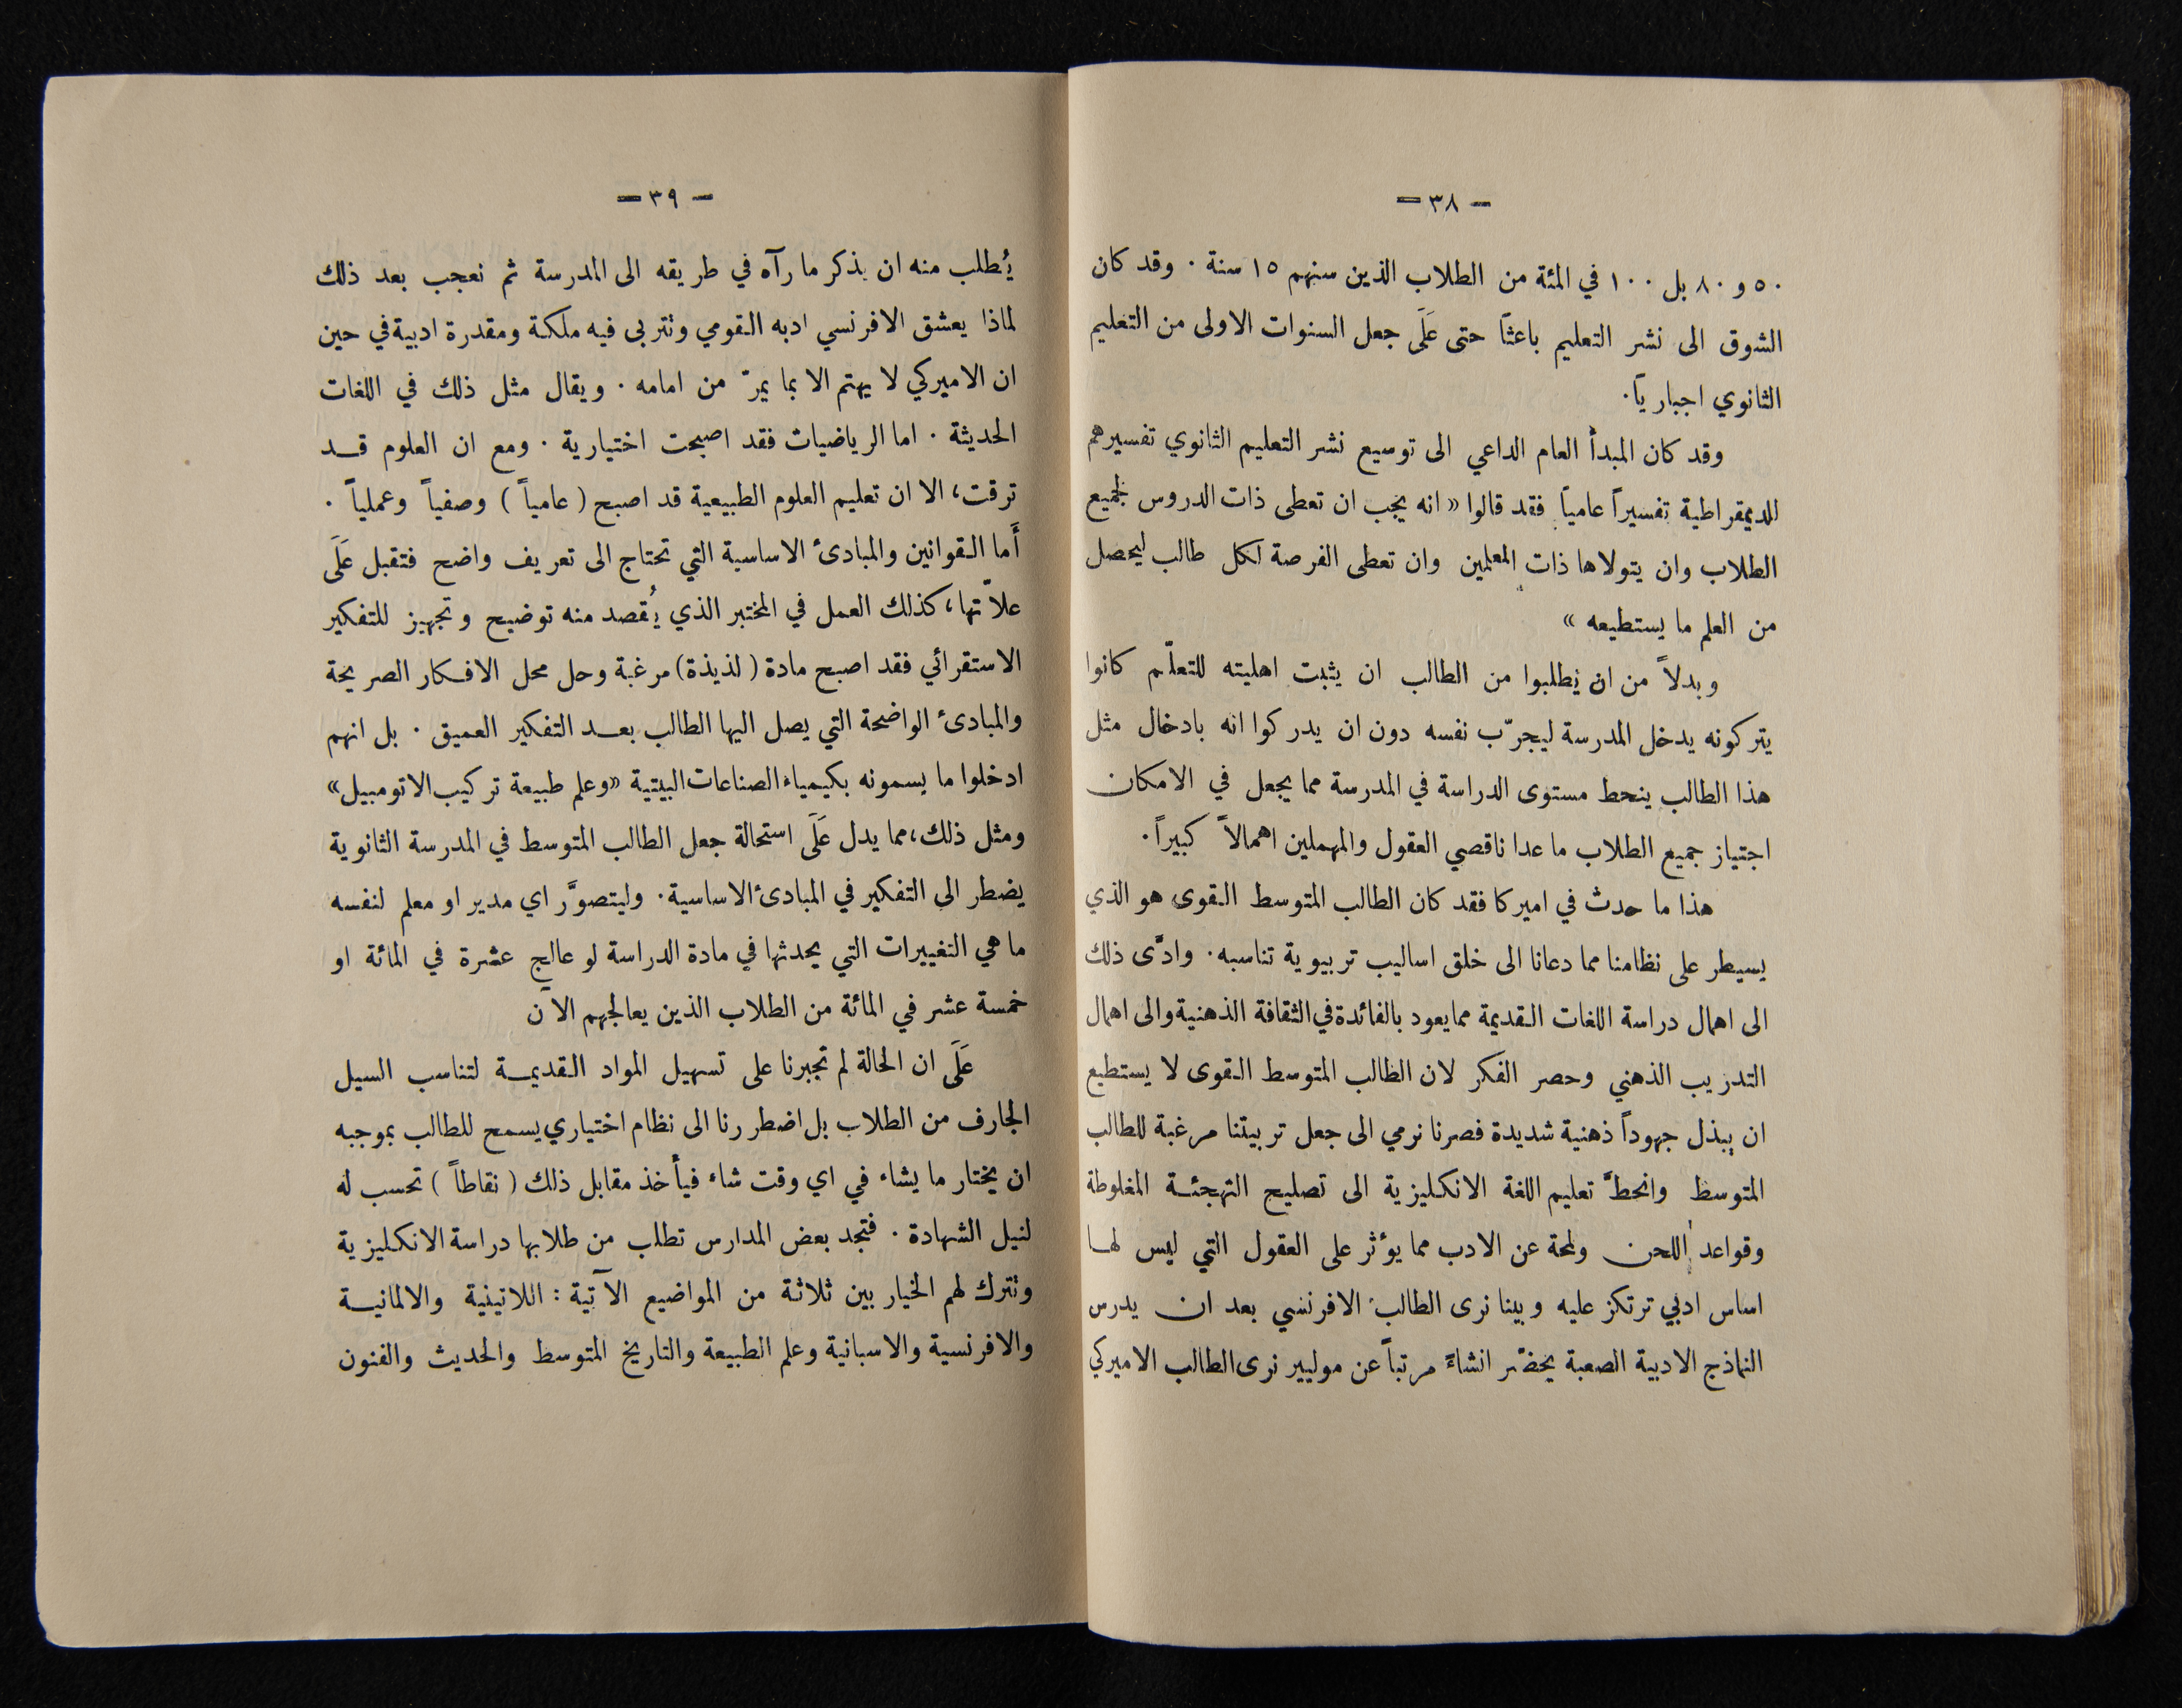 — ٣٨ —
٥٠ و ٨٠ بل ١٠٠ في المئة من الطلاب الذين سنهم ١٥ سنة . وقد كان
الشوق الى نشر التعليم باعثاً حتى عَلَى جعل السنوات الاولى من التعليم
الثانوي اجبارياً .
وقد كان المبدأ العام الداعي الى توسيع نشر التعليم الثانوي تفسيرهم
للديمقراطية تفسيراً عامياً فقد قالوا « انه يجب ان تعطى ذات الدروس لجميع
الطلاب وان يتولاها ذات المعلمين وان تعطى الفرصة لكل طالب ليحصل
من العلم ما يستطيعه »
وبدلاً من ان يطلبوا من الطالب ان يثبت اهليته للتعلّم كانوا
يتركونه يدخل المدرسة ليجرّب نفسه دون ان يدركوا انه بادخال مثل
هذا الطالب ينحط مستوى الدراسة في المدرسة مما يجعل في الامكان
اجتياز جميع الطلاب ما عدا ناقصي العقول والمهملين اهمالاً كبيراً .
هذا ما حدث في اميركا فقد كان الطالب المتوسط القوى هو الذي
يسيطر على نظامنا مما دعانا الى خلق اساليب تربيوية تناسبه . وادَّى ذلك
الى اهمال دراسة اللغات القديمة مما يعود بالفائدة في الثقافة الذهنية والى اهمال
التدريب الذهني وحصر الفكر لان الطالب المتوسط القوى لا يستطيع
ان يبذل جهوداً ذهنية شديدة فصرنا نرمي الى جعل تربيتنا مرغبة للطالب
المتوسط وانحطَّ تعليم اللغة الانكليزية الى تصليح التهجئة المغلوطة
وقواعد اللحن ولمحة عن الادب مما يؤثر على العقول التي ليس لها
اساس ادبي ترتكز عليه وبينا نرى الطالب الافرنسي بعد ان يدرس
النماذج الادبية الصعبة يحضّر انشاءً مرتباً عن موليير نرى الطالب الاميركي
— ٣٩ —
يُطلب منه ان يذكر ما رآه في طريقه الى المدرسة ثم نعجب بعد ذلك
لماذا يعشق الافرنسي ادبه القومي وتتربى فيه ملكة ومقدرة ادبية في حين
ان الاميركي لا يهتم الا بما يمرّ من امامه . ويقال مثل ذلك في اللغات
الحديثة . اما الرياضيات فقد اصبحت اختيارية . ومع ان العلوم قد
ترقت، الا ان تعليم العلوم الطبيعية قد اصبح ( عامياً ) وصفياً وعملياً .
أَما القوانين والمبادئ الاساسية التي تحتاج الى تعريف واضح فتقبل عَلَى
علاّتها، كذلك العمل في المختبر الذي يُقصد منه توضيح وتجهيز للتفكير
الاستقرائي فقد اصبح مادة ( لذيذة ) مرغبة وحل محل الافكار الصريحة
والمبادئ الواضحة التي يصل اليها الطالب بعد التفكير العميق . بل انهم
ادخلوا ما يسمونه بكيمياء الصناعات البيتية «وعلم طبيعة تركيب الاتومبيل»
ومثل ذلك، مما يدل عَلَى استحالة جعل الطالب المتوسط في المدرسة الثانوية
يضطر الى التفكير في المبادئ الاساسية . وليتصوَّر اي مدير او معلم لنفسه
ما هي التغييرات التي يحدثها في مادة الدراسة لو عالج عشرة في المائة او
خمسة عشر في المائة من الطلاب الذين يعالجهم الآن
عَلَى ان الحالة لم تجبرنا على تسهيل المواد القديمة لتناسب السيل
الجارف من الطلاب بل اضطررنا الى نظام اختياري يسمح للطالب بموجبه
ان يختار ما يشاء في اي وقت شاء فيأخذ مقابل ذلك ( نقاطاً ) تحسب له
لنيل الشهادة . فتجد بعض المدارس تطلب من طلابها دراسة الانكليزية
وتترك لهم الخيار بين ثلاثة من المواضيع الآتية : اللاتينية والالمانية
والافرنسية والاسبانية وعلم الطبيعة والتاريخ المتوسط والحديث والفنون